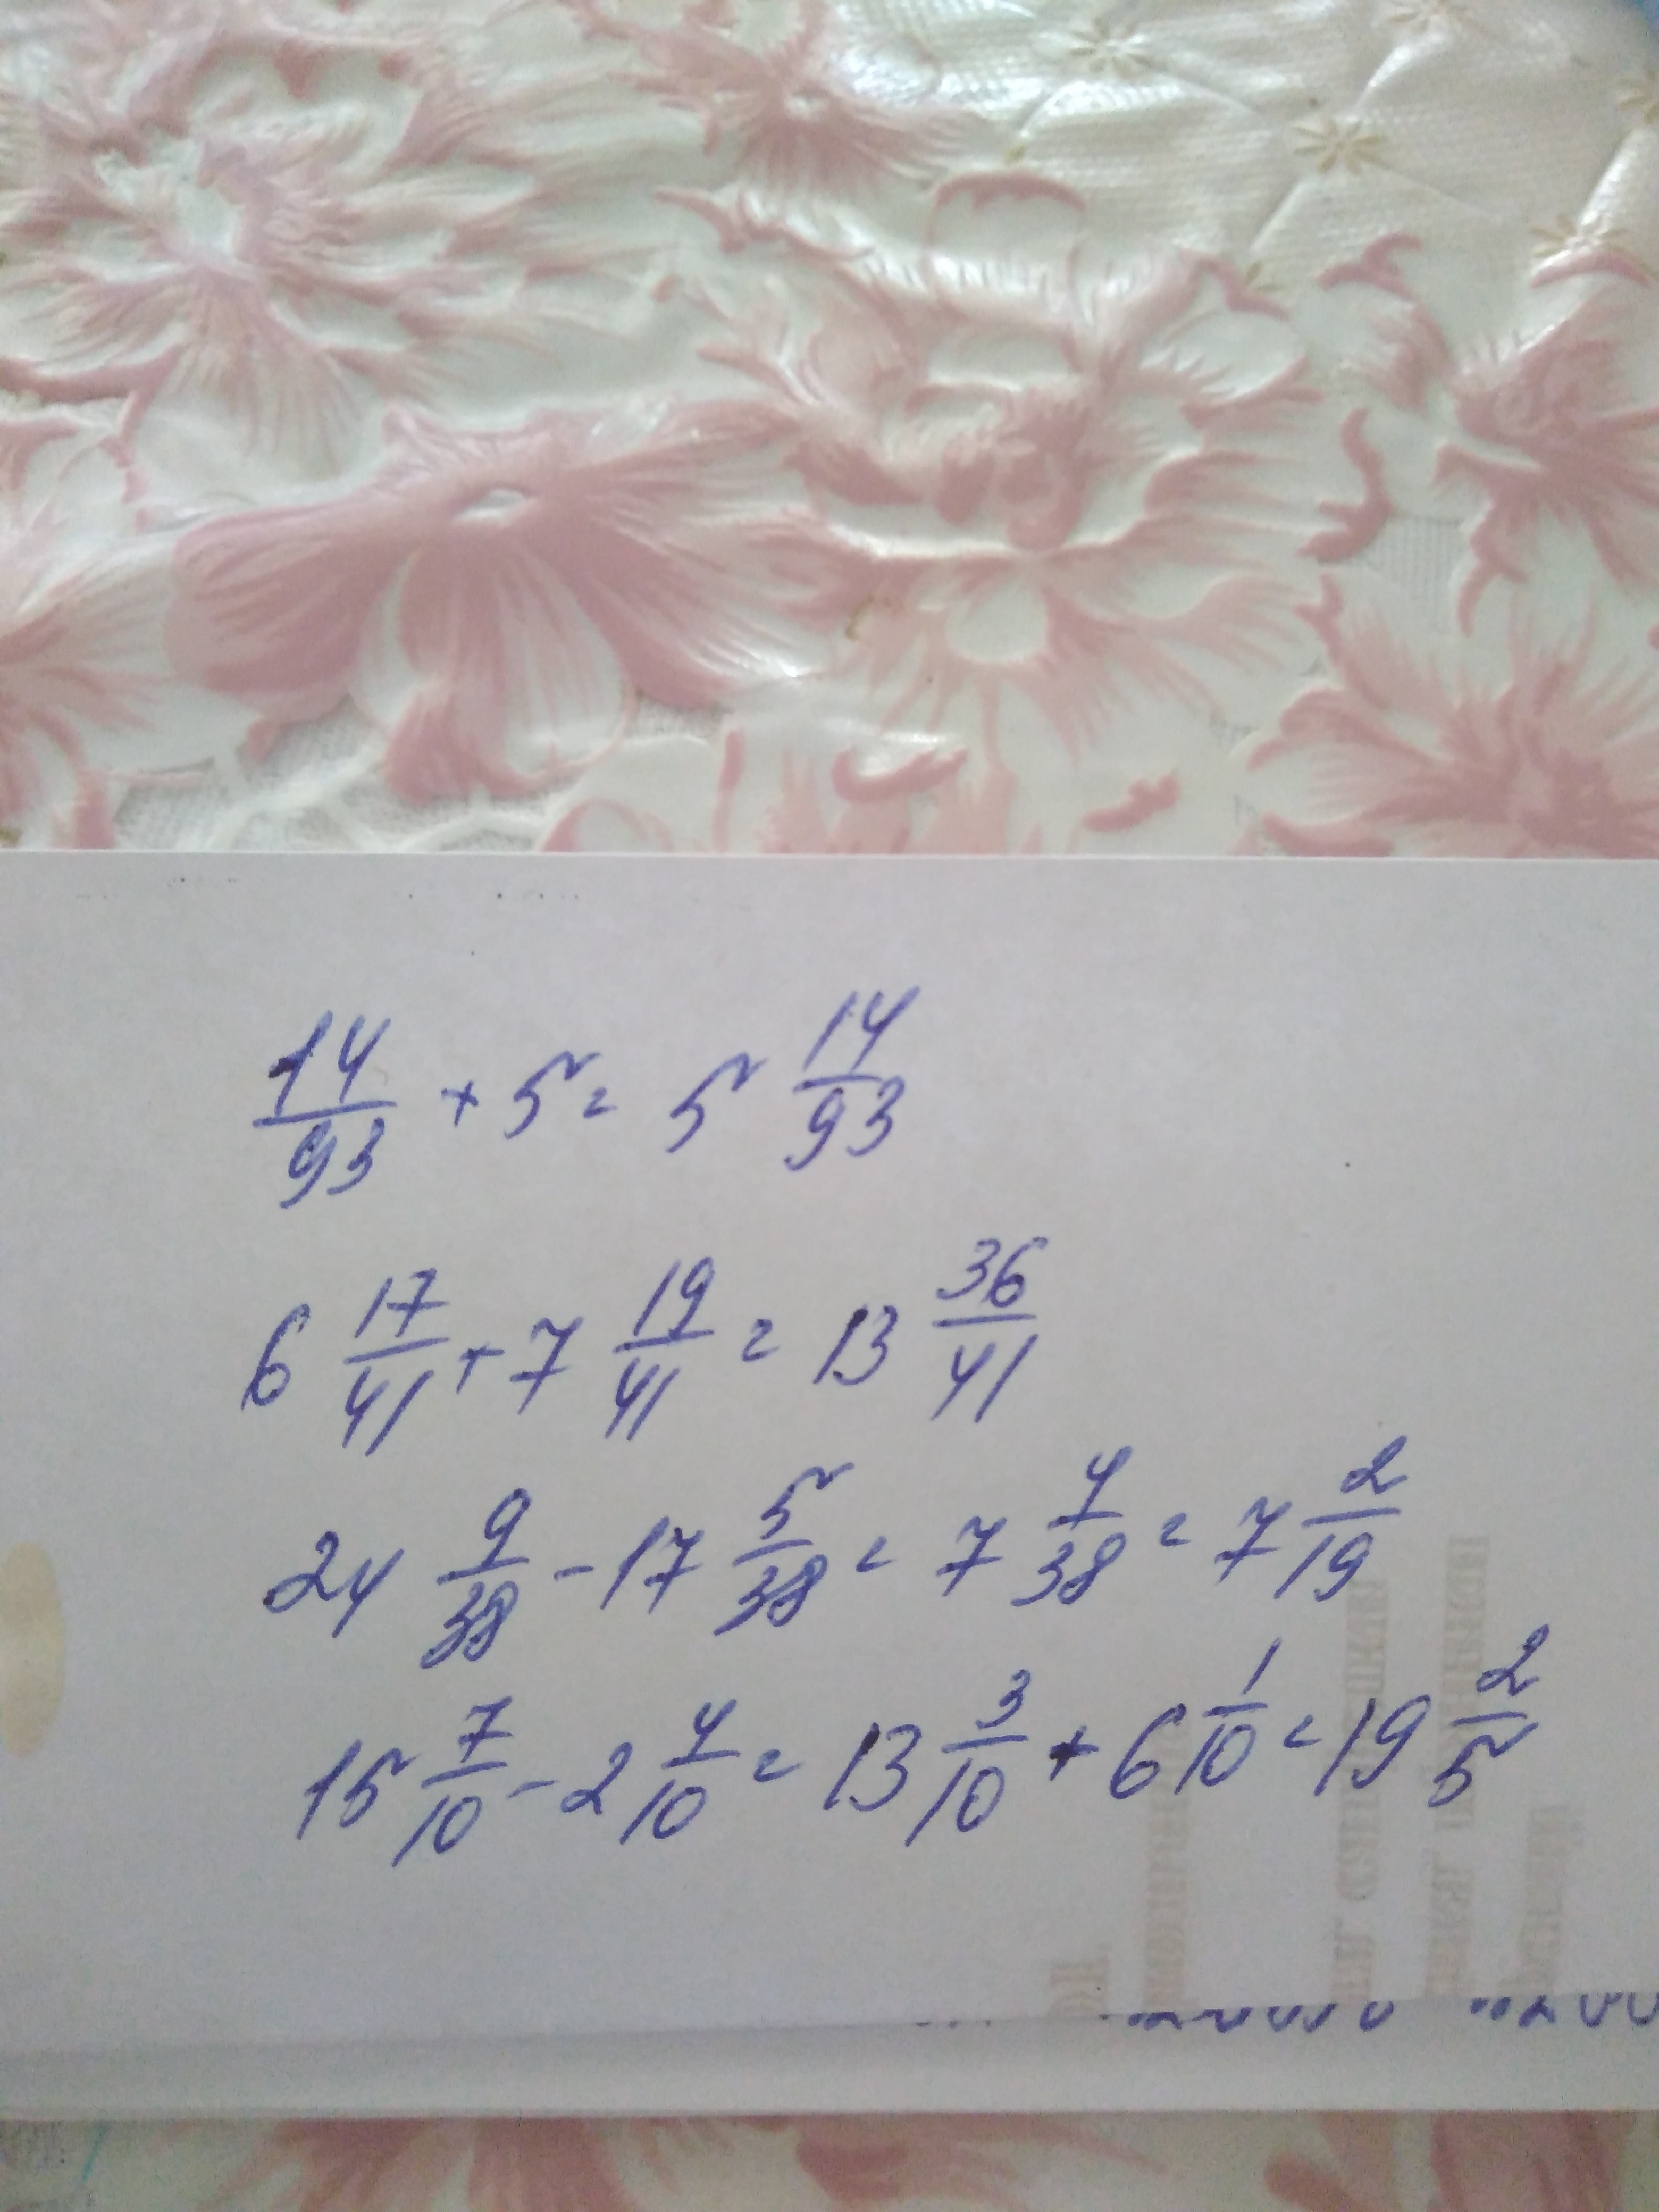 14/93 + 5 = 5 14/93
6 17/41 + 7 19/41 = 13 36/41
24 9/38 - 17 5/38 = 7 4/38 = 7 2/19
15 7/10 - 2 4/10 = 13 3/10 + 6 1/10 = 19 2/5